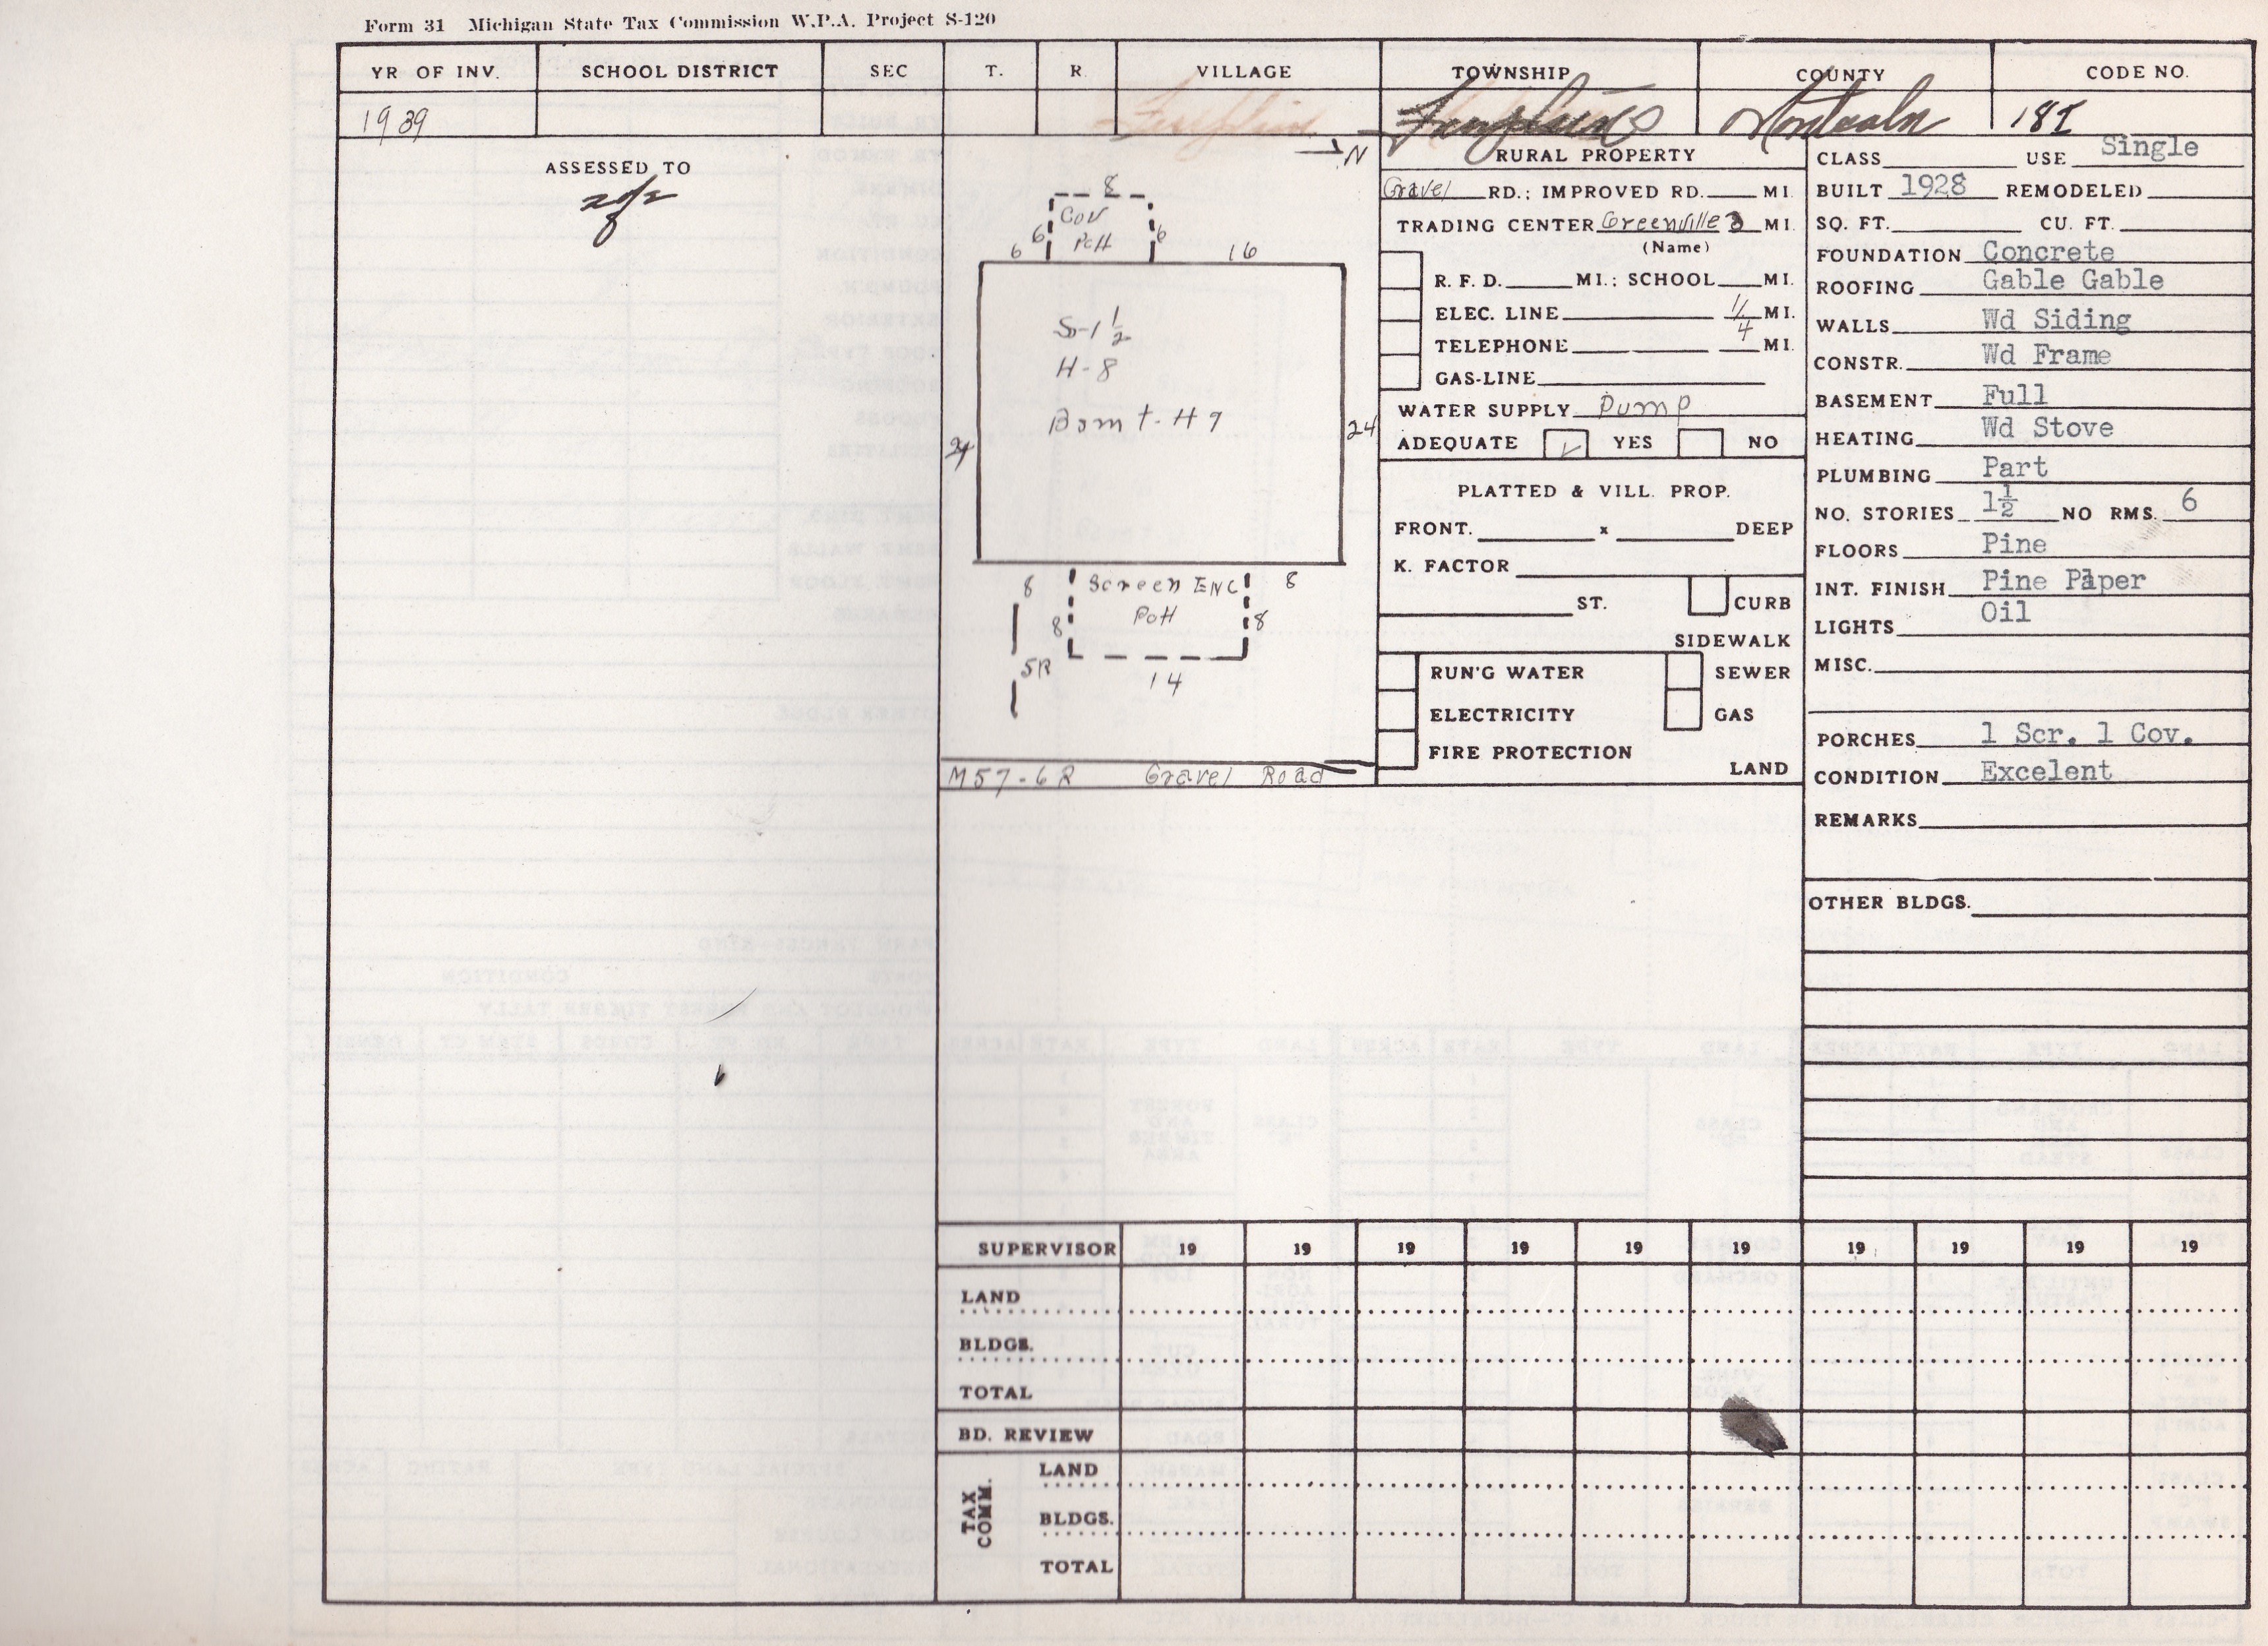 Form 31 Michigan State Tax Commission W.P.A. Project S-120
YR OF INV. SCHOOL DISTRICT SEC T. R. VILLAGE TOWNSHIP COUNTY CODE NO.
1939 Fairplains Montcalm 182
ASSESSED TO
2 of 2
N
8
Cov
Pch
6 6
6 16
S-1 1/2
H-8
Bsmt-H7
24 24
Screen ENC
PcH
8 8
8 8
5R
14
M57-6R Gravel Road
RURAL PROPERTY
Gravel RD.; IMPROVED RD. MI.
TRADING CENTER Greenville 3 MI.
(Name)
R. F. D. MI.; SCHOOL MI.
ELEC. LINE 1/4 MI.
TELEPHONE MI.
GAS-LINE
WATER SUPPLY Pump
ADEQUATE ✓ YES NO
PLATTED & VILL. PROP.
FRONT. x DEEP
K. FACTOR
ST. CURB
SIDEWALK
RUN'G WATER SEWER
ELECTRICITY GAS
FIRE PROTECTION
LAND
CLASS USE Single
BUILT 1928 REMODELED
SQ. FT. CU. FT.
FOUNDATION Concrete
ROOFING Gable Gable
WALLS Wd Siding
CONSTR. Wd Frame
BASEMENT Full
HEATING Wd Stove
PLUMBING Part
NO. STORIES 1½ NO RMS. 6
FLOORS Pine
INT. FINISH Pine Paper
LIGHTS Oil
MISC.
PORCHES 1 Scr. 1 Cov.
CONDITION Excelent
REMARKS
OTHER BLDGS.
SUPERVISOR 19 19 19 19 19 19 19 19 19 19
LAND
BLDGS.
TOTAL
BD. REVIEW
TAX COMM.
LAND
BLDGS.
TOTAL